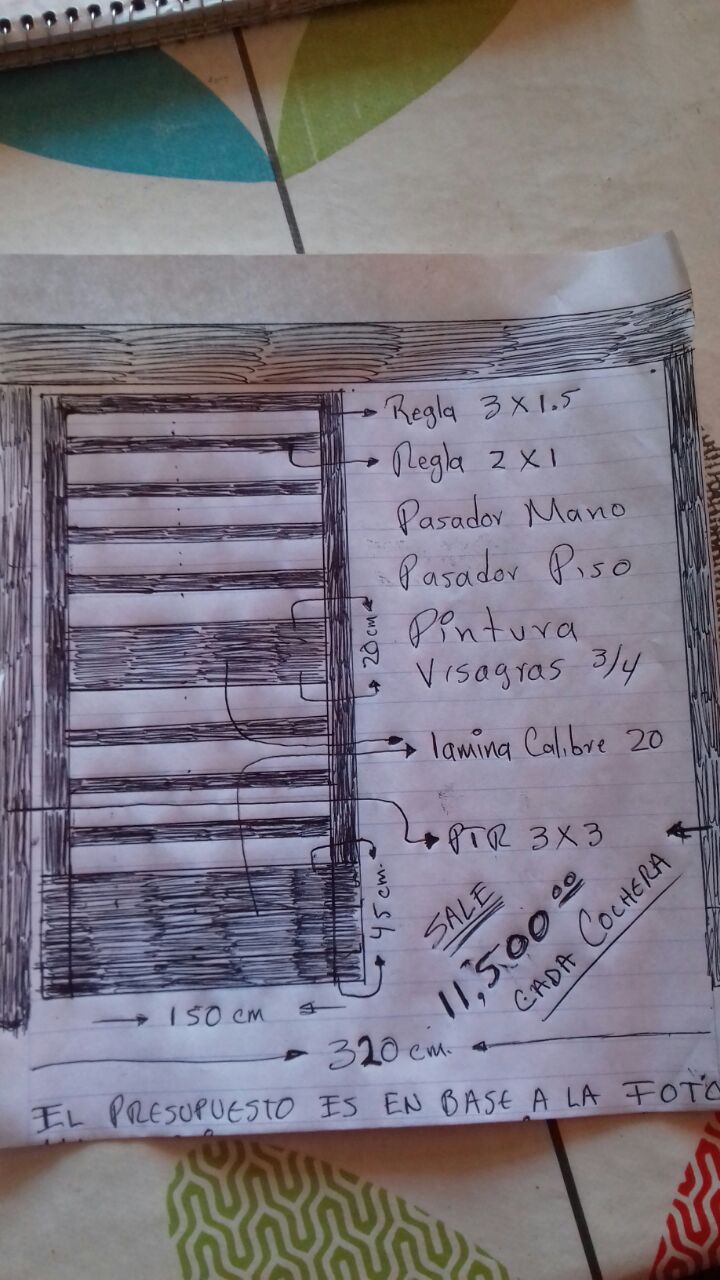 Regla 3 X 1.5
Regla 2 X 1
Pasador Mano
Pasador Piso
20 cm
Pintura
Visagras 3/4
lamina Calibre 20
PTR 3 X 3
45 cm.
SALE
11,500.00
CADA COCHERA
150 cm
320 cm.
EL PRESUPUESTO ES EN BASE A LA FOTO